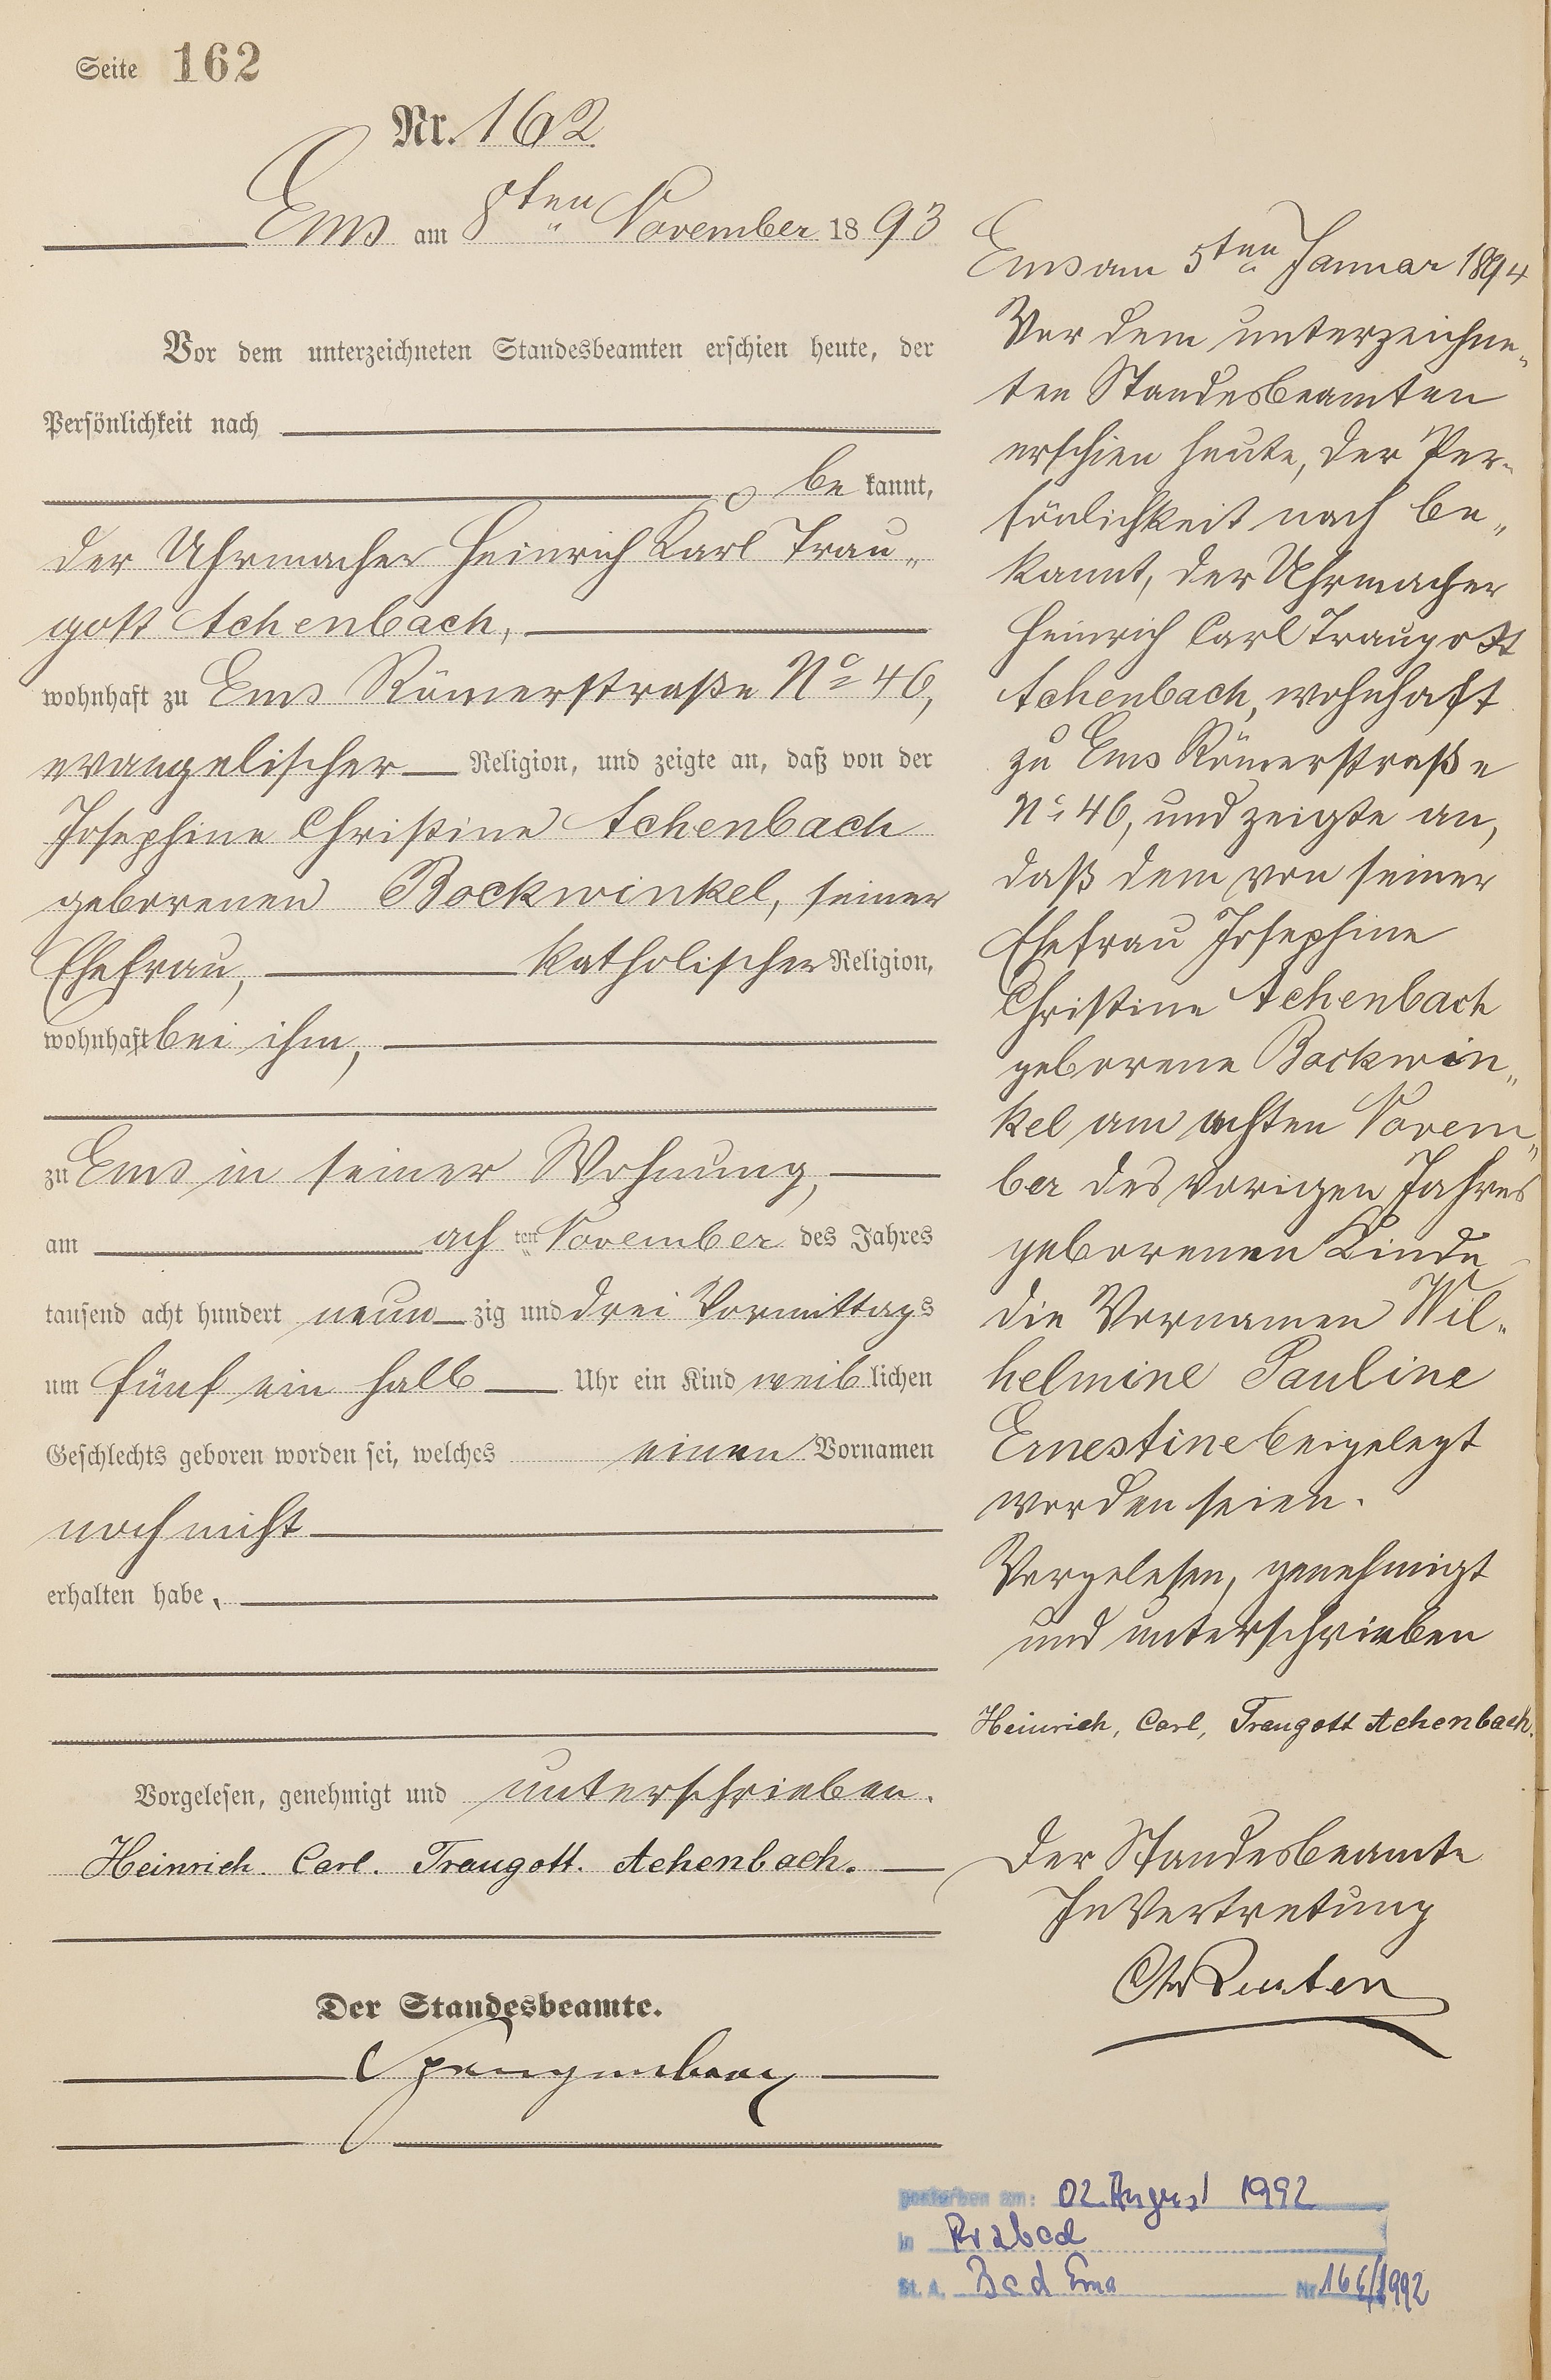 Seite 162
Nr. 162
Ems am 8ten November 1893
Vor dem unterzeichneten Standesbeamten erschien heute, der
Persönlichkeit nach
be kannt,
der Uhrmacher Heinrich Karl Trau„
gott Achenbach,
wohnhaft zu Ems Römerstraße No 46,
evangelischer Religion, und zeigte an, daß von der
Josephine Christine Achenbach
geborenen Bockwinkel, seiner
Ehefrau, katholischer Religion,
wohnhaft bei ihm,
zu Ems in seiner Wohnung,
am ach ten November des Jahres
tausend acht hundert neun zig und drei Vormittags
um fünf ein halb Uhr ein Kind weib lichen
Geschlechts geboren worden sei, welches einen Vornamen
noch nicht
erhalten habe,
Vorgelesen, genehmigt und unterschrieben.
Heinrich. Carl. Traugott. Achenbach.
Der Standesbeamte.
Ems am 5ten Januar 1894
Vor dem unterzeichne„
ten Standesbeamten
erschien heute, der Per-
sönlichkeit nach be„
kannt, der Uhrmacher
Heinrich Carl Traugott
Achenbach, wohnhaft
zu Ems Römerstraße
No 46, und zeigte an,
daß dem von seiner
Ehefrau Josephine
Christine Achenbach
geborene Bockwin„
kel am achten Novem„
ber des vorigen Jahres
geborenen Kinde
die Vornamen Wil-
helmine Pauline
Ernestine beigelegt
worden seien.
Vorgelesen, genehmigt
und unterschrieben
Heinrich, Carl, Traugott Achenbach.
Der Standesbeamte
In Vertretung
gestorben am: 02. August 1992
in
St. A. Bad Ems Nr.